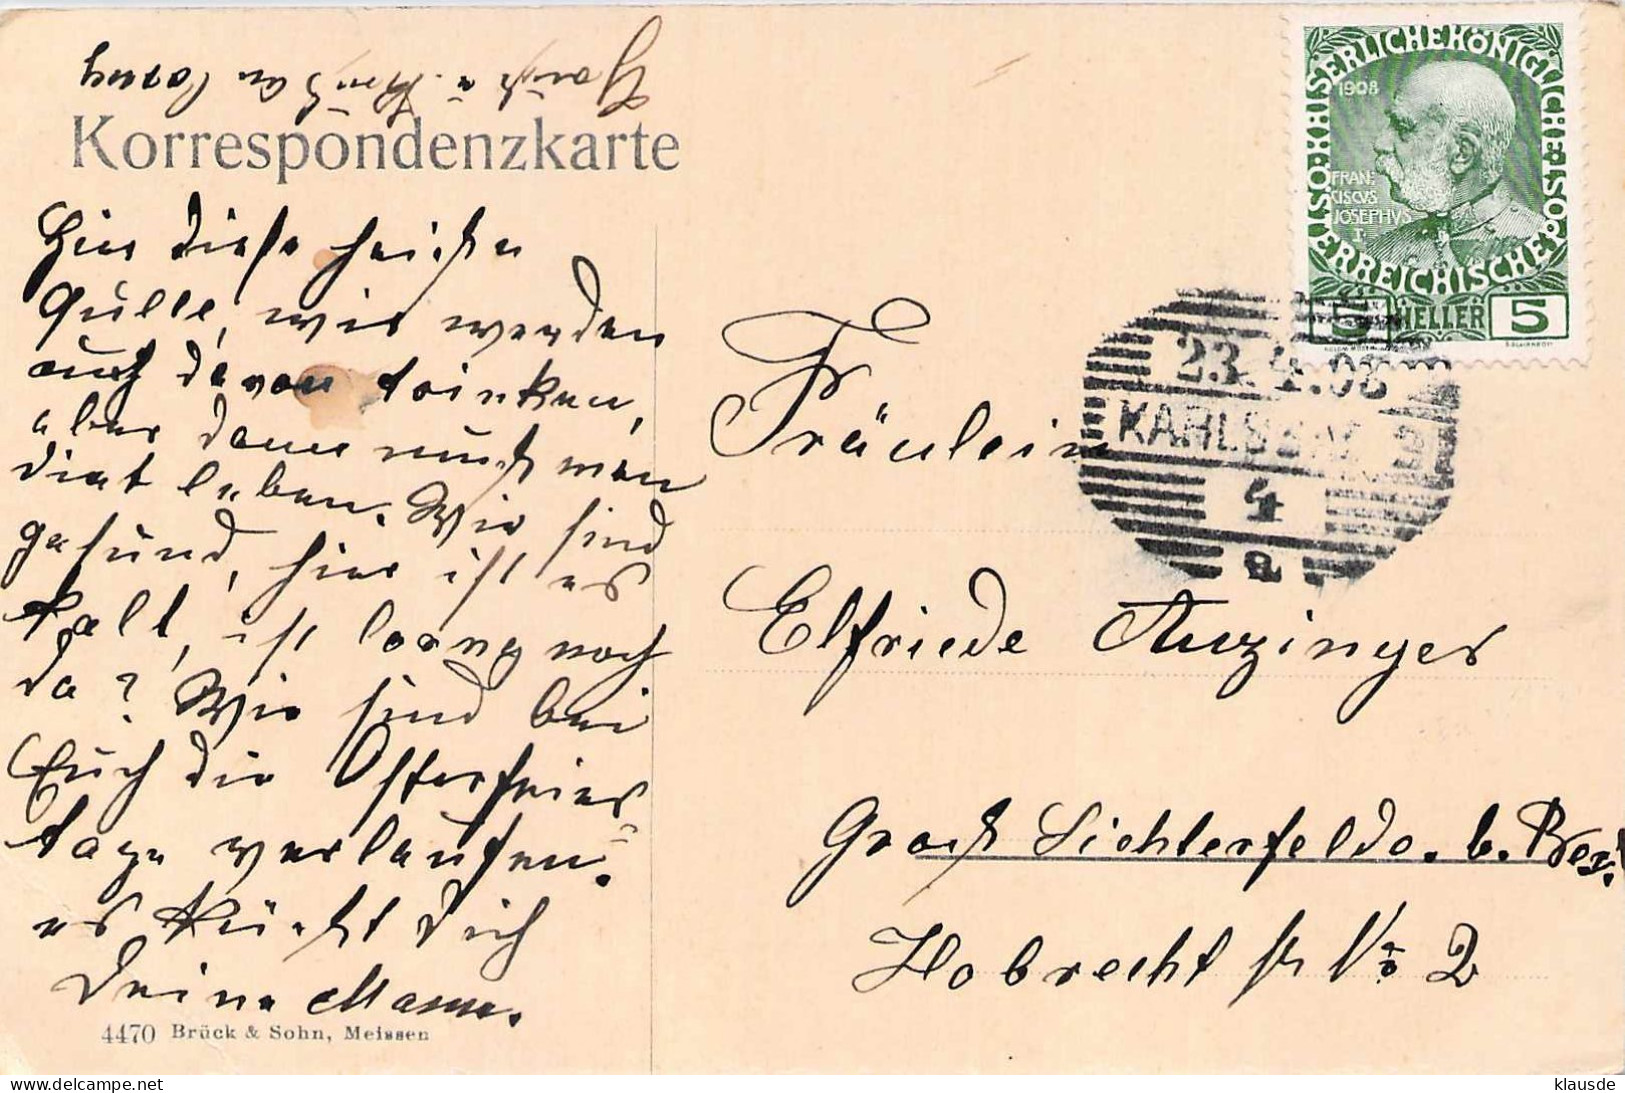 Gruß u. Kuß an Georg
Korrespondenzkarte
Hier diese heiße
Qúelle, wir werden
auch davon trinken,
aber dann muß man
diät leben. Wir sind
gesúnd, hier ist es
kalt, ist Georg noch
da? Wie sind bei
Eúch die Osterfeier=
tage verlaufen.
es küßt Dich
Deine Mama.
4470 Brück & Sohn, Meissen
K.K. ÖSTERREICHISCHE POST
KAISERLICHEKÖNIGLICHE
1908
FRAN=
CISCVS
JOSEPHVS
I.
5 HELLER 5
23.4.08
KARLSBAD
4
a
Fräulein
Elfriede Anzinger
Groß Lichterfelde. b. Ber.
Hobrecht str No 2
klausde
delcampe.net